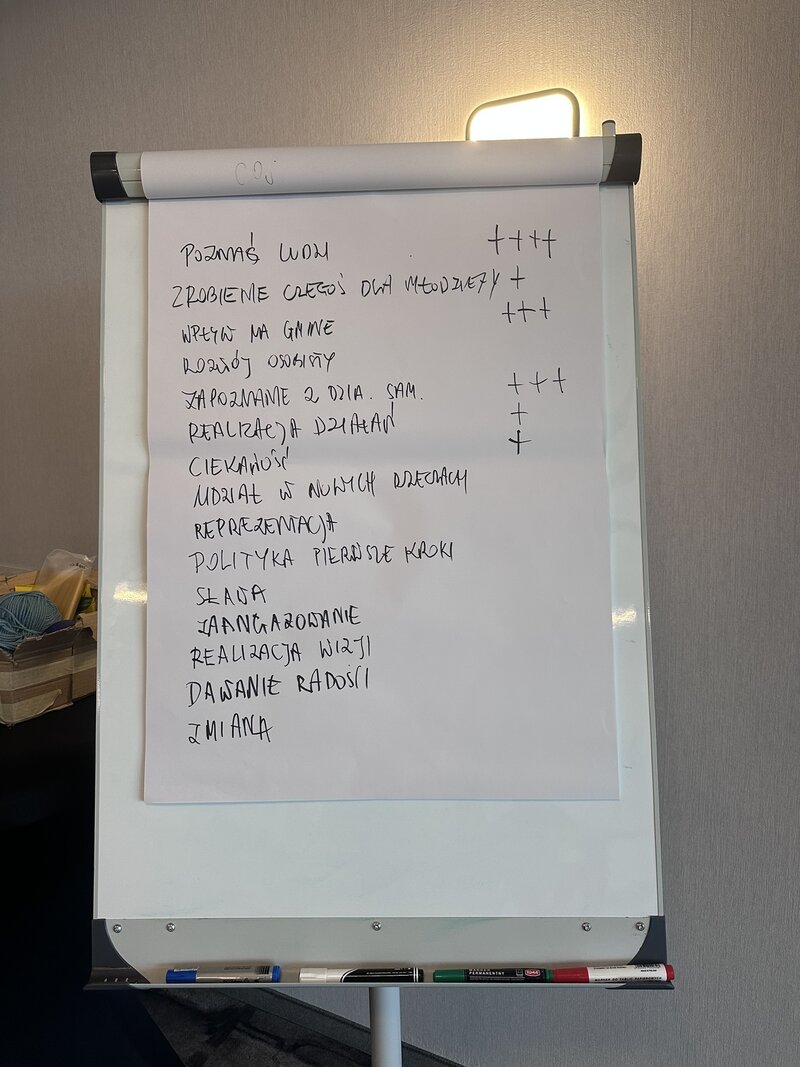 COŚ
POZNAĆ LUDZI ++++
ZROBIENIE CZEGOŚ DLA MŁODZIEŻY +
WPŁYW NA GMINE +++
ROZWÓJ OSOBISTY
ZAPOZNANIE Z DZIA. SAM. +++
REALIZACJA DZIAŁAŃ +
CIEKAWOŚĆ +
UDZIAŁ W NOWYCH RZECZACH
REPREZENTACJA
POLITYKA PIERWSZE KROKI
SŁAWA
ZAANGAZOWANIE
REALIZACJA WIZJI
DAWANIE RADOŚCI
ZMIANA
PERMANENTNY